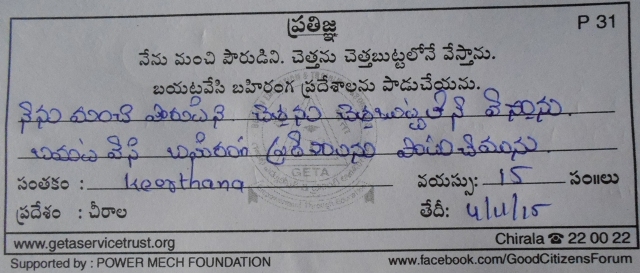 ప్రతిజ్ఞ P 31
నేను మంచి పౌరుడిని. చెత్తను చెత్తబుట్టలోనే వేస్తాను.
బయటవేసి బహిరంగ ప్రదేశాలను పాడుచేయను.
నేను మంచి పౌరుడిని చెత్తను చెత్తబుట్టలోనే వేస్తాను.
బయట వేసి బహిరంగ ప్రదేశాలను పాడుచేయను.
సంతకం : keerthana వయస్సు: 15 సం॥లు
GETA
ప్రదేశం : చీరాల తేదీ: 4/11/15
www.getaservicetrust.org Chirala ☎ 22 00 22
Supported by : POWER MECH FOUNDATION www.facebook.com/GoodCitizensForum